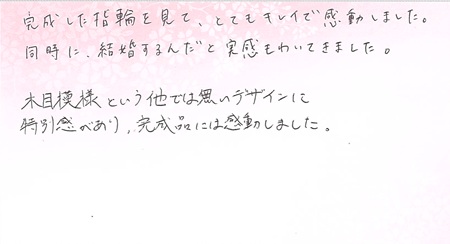 完成した指輪を見て、とてもキレイで感動しました。
同時に、結婚するんだと実感もわいてきました。
木目模様という他では無いデザインに
特別感があり、完成品には感動しました。